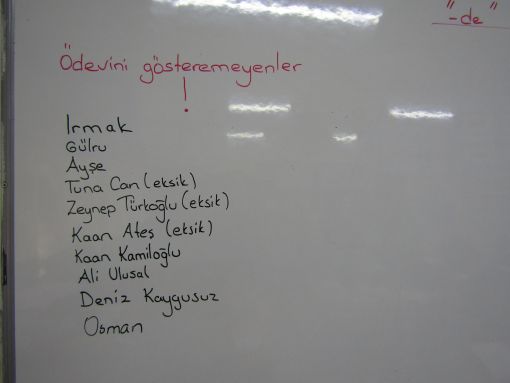 "-de"
Ödevini gösteremeyenler
!
Irmak
Gülru
Ayşe
Tuna Can (eksik)
Zeynep Türkoğlu (eksik)
Kaan Ateş (eksik)
Kaan Kamiloğlu
Ali Ulusal
Deniz Kaygusuz
Osman